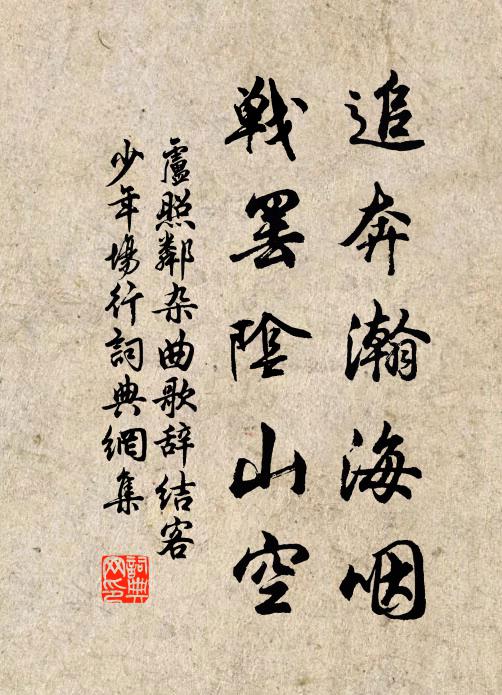 追奔瀚海咽
戰罷陰山空
盧照鄰杂曲歌辞结客
少年場行詞典網集
詞典
网印